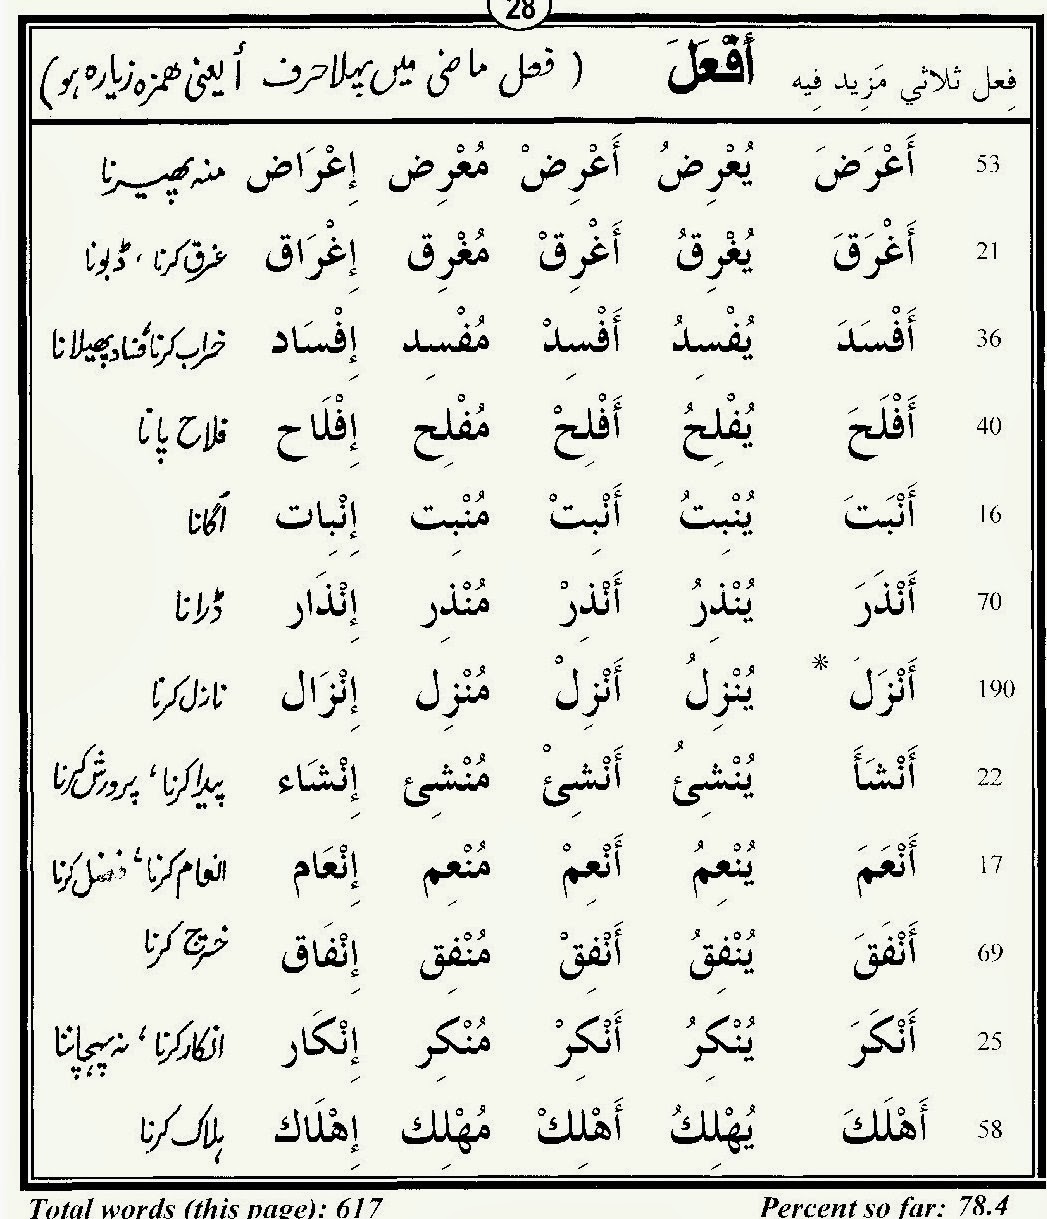 28
فِعل ثلاثي مَزِيد فِيه أَفْعَلَ ( فعل ماضی میں پہلا حرف أ یعنی ھمزہ زیادہ ہو)
53 أَعْرَضَ يُعْرِضُ أَعْرِضْ مُعْرِض إِعْرَاض منہ پھیرنا
21 أَغْرَقَ يُغْرِقُ أَغْرِقْ مُغْرِق إِغْرَاق غرق کرنا ، ڈبونا
36 أَفْسَدَ يُفْسِدُ أَفْسِدْ مُفْسِد إِفْسَاد خراب کرنا، فساد پھیلانا
40 أَفْلَحَ يُفْلِحُ أَفْلِحْ مُفْلِح إِفْلَاح فلاح پانا
16 أَنْبَتَ يُنْبِتُ أَنْبِتْ مُنْبِت إِنْبِات اگانا
70 أَنْذَرَ يُنْذِرُ أَنْذِرْ مُنْذِر إِنْذَار ڈرانا
190 أَنْزَلَ * يُنْزِلُ أَنْزِلْ مُنْزِل إِنْزَال نازل کرنا
22 أَنْشَأَ يُنْشِئُ أَنْشِئْ مُنْشِئ إِنْشَاء پیدا کرنا ، پرورش کرنا
17 أَنْعَمَ يُنْعِمُ أَنْعِمْ مُنْعِم إِنْعَام انعام کرنا ، فضل کرنا
69 أَنْفَقَ يُنْفِقُ أَنْفِقْ مُنْفِق إِنْفَاق خرچ کرنا
25 أَنْكَرَ يُنْكِرُ أَنْكِرْ مُنْكِر إِنْكَار انکار کرنا ، نہ پہچاننا
58 أَهْلَكَ يُهْلِكُ أَهْلِكْ مُهْلِك إِهْلَاك ہلاک کرنا
Total words (this page): 617 Percent so far: 78.4